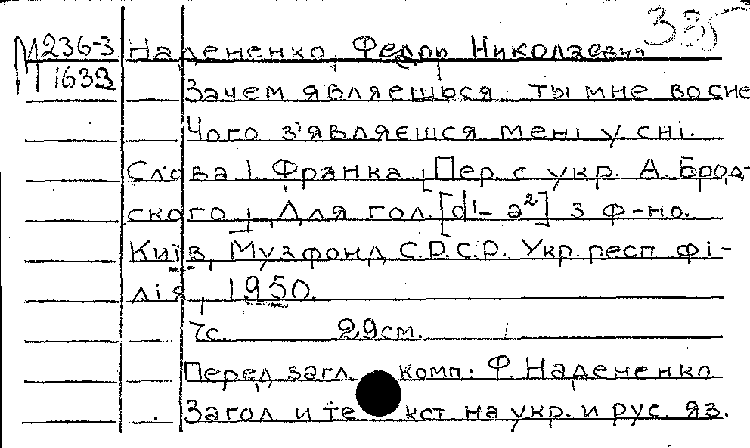 335
М236-3 Надененко, Федри Николаевич
М1633
Зачем являешься ты мне во сне
Чого з'являєшся мені у сні.
Слова І. Франка, Пер. с укр. А. Брод-
ского, Для гол. [d¹- a²] з ф-но.
Київ, Музфонд С.Р.С.Р. Укр. респ. фі-
лія, 1950.
7с. 29см.
Перед загл. комп: Ф. Надененко
Загол и текст на укр. и рус. яз.